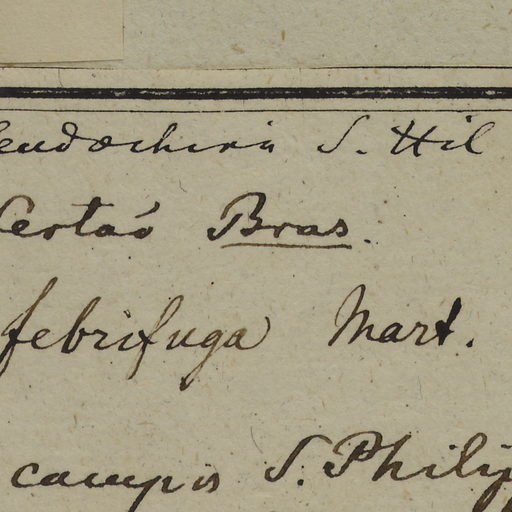 seudochina S. Hil
Certaó Bras.
febrifuga Mart.
campis S. Philip